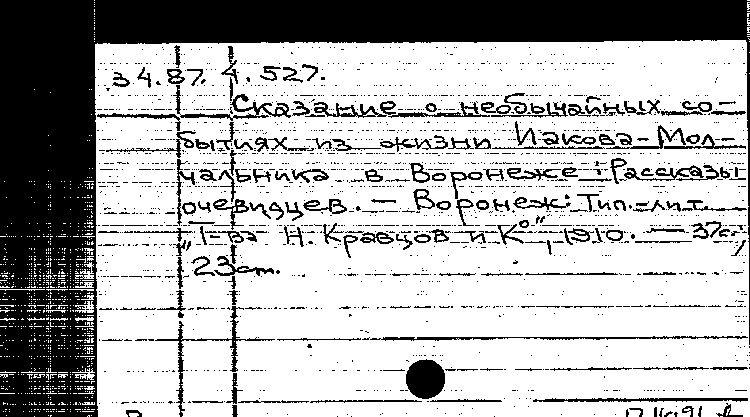 34.87.4.527.
Сказание о необычайных со-
бытиях из жизни Иакова-Мол-
чальника в Воронеже : Рассказы
очевидцев. — Воронеж: Тип.-лит.
„Т-ва Н. Кравцов и К°“, 1910. — 37с.;
23см.